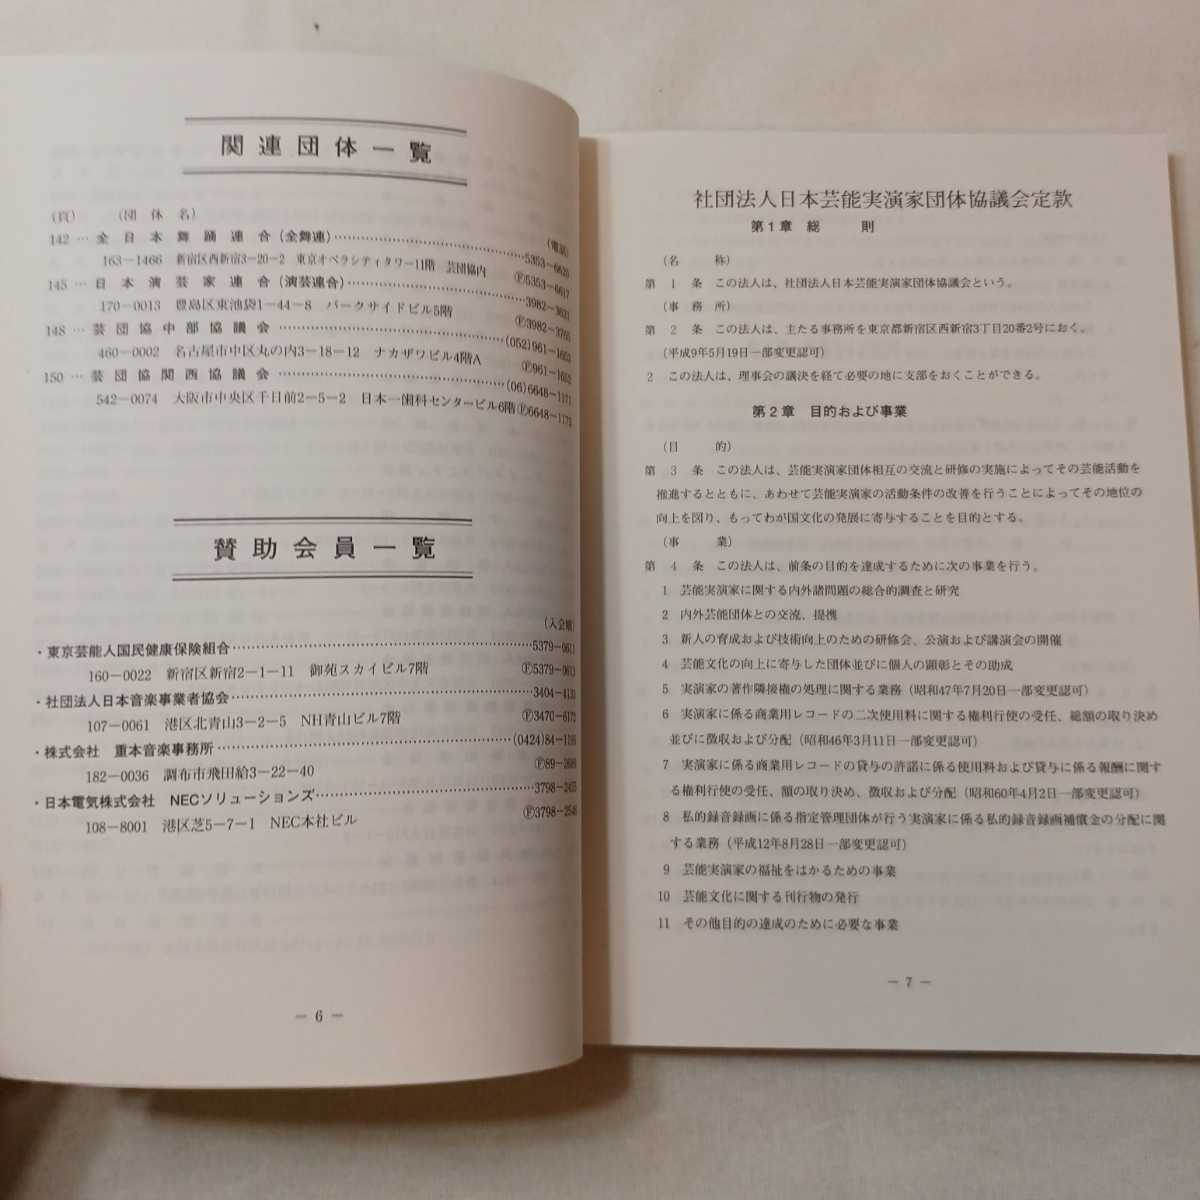 関連団体一覧
(頁) (団体名) (電話)
142 … 全日本舞踊連合(全舞連)……5353−6620
163−1466 新宿区西新宿3−20−2 東京オペラシティタワー11階 芸団協内 Ⓕ5353−6617
145 … 日本演芸家連合(演芸連合)……3982−3631
170−0013 豊島区東池袋1−44−8 パークサイドビル5階 Ⓕ3982−3765
148 … 芸団協中部協議会……(052)961−1653
460−0002 名古屋市中区丸の内3−18−12 ナカザワビル4階A Ⓕ961−1652
150 … 芸団協関西協議会……(06)6648−1171
542−0074 大阪市中央区千日前2−5−2 日本一歯科センタービル6階 Ⓕ6648−1173
賛助会員一覧
(入会順)
・東京芸能人国民健康保険組合……5379−0611
160−0022 新宿区新宿2−1−11 御苑スカイビル7階 Ⓕ5379−0613
・社団法人日本音楽事業者協会……3404−4131
107−0061 港区北青山3−2−5 NH青山ビル7階 Ⓕ3470−6172
・株式会社 重本音楽事務所……(0424)84−1286
182−0036 調布市飛田給3−22−40 Ⓕ89−2688
・日本電気株式会社 NECソリューションズ……3798−2455
108−8001 港区芝5−7−1 NEC本社ビル Ⓕ3798−2546
− 6 −
社団法人日本芸能実演家団体協議会定款
第1章 総 則
(名 称)
第 1 条 この法人は、社団法人日本芸能実演家団体協議会という。
(事 務 所)
第 2 条 この法人は、主たる事務所を東京都新宿区西新宿3丁目20番2号におく。
(平成9年5月19日一部変更認可)
2 この法人は、理事会の議決を経て必要の地に支部をおくことができる。
第2章 目的および事業
(目 的)
第 3 条 この法人は、芸能実演家団体相互の交流と研修の実施によってその芸能活動を
推進するとともに、あわせて芸能実演家の活動条件の改善を行うことによってその地位の
向上を図り、もってわが国文化の発展に寄与することを目的とする。
(事 業)
第 4 条 この法人は、前条の目的を達成するために次の事業を行う。
1 芸能実演家に関する内外諸問題の総合的調査と研究
2 内外芸能団体との交流、提携
3 新人の育成および技術向上のための研修会、公演および講演会の開催
4 芸能文化の向上に寄与した団体並びに個人の顕彰とその助成
5 実演家の著作隣接権の処理に関する業務(昭和47年7月20日一部変更認可)
6 実演家に係る商業用レコードの二次使用料に関する権利行使の受任、総額の取り決め
並びに徴収および分配(昭和46年3月11日一部変更認可)
7 実演家に係る商業用レコードの貸与の許諾に係る使用料および貸与に係る報酬に関す
る権利行使の受任、額の取り決め、徴収および分配(昭和60年4月2日一部変更認可)
8 私的録音録画に係る指定管理団体が行う実演家に係る私的録音録画補償金の分配に関
する業務(平成12年8月28日一部変更認可)
9 芸能実演家の福祉をはかるための事業
10 芸能文化に関する刊行物の発行
11 その他目的の達成のために必要な事業
− 7 −